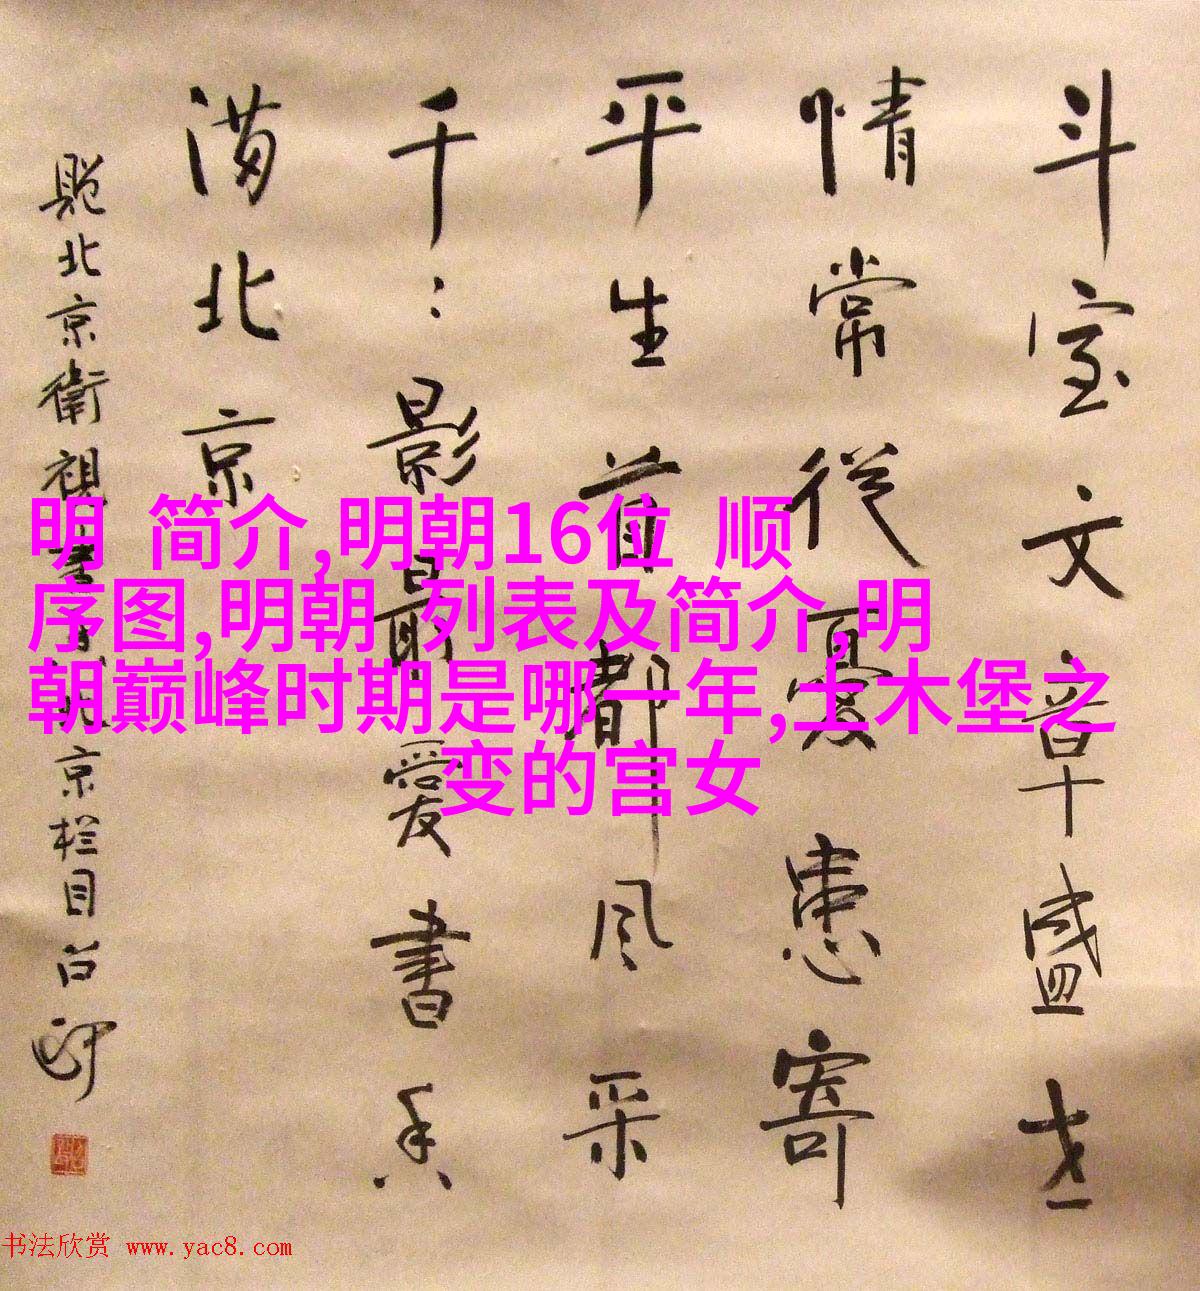 斗室文章盛世
情常從憂患寄
平生首都風采
千:影最愛書香
满北京
京衛視書
京栏目
明 简介,明朝16位 顺
序图,明朝 列表及简介,明
朝巅峰时期是哪一年,土木堡之
变的宫女
书法欣赏 www.yac8.com